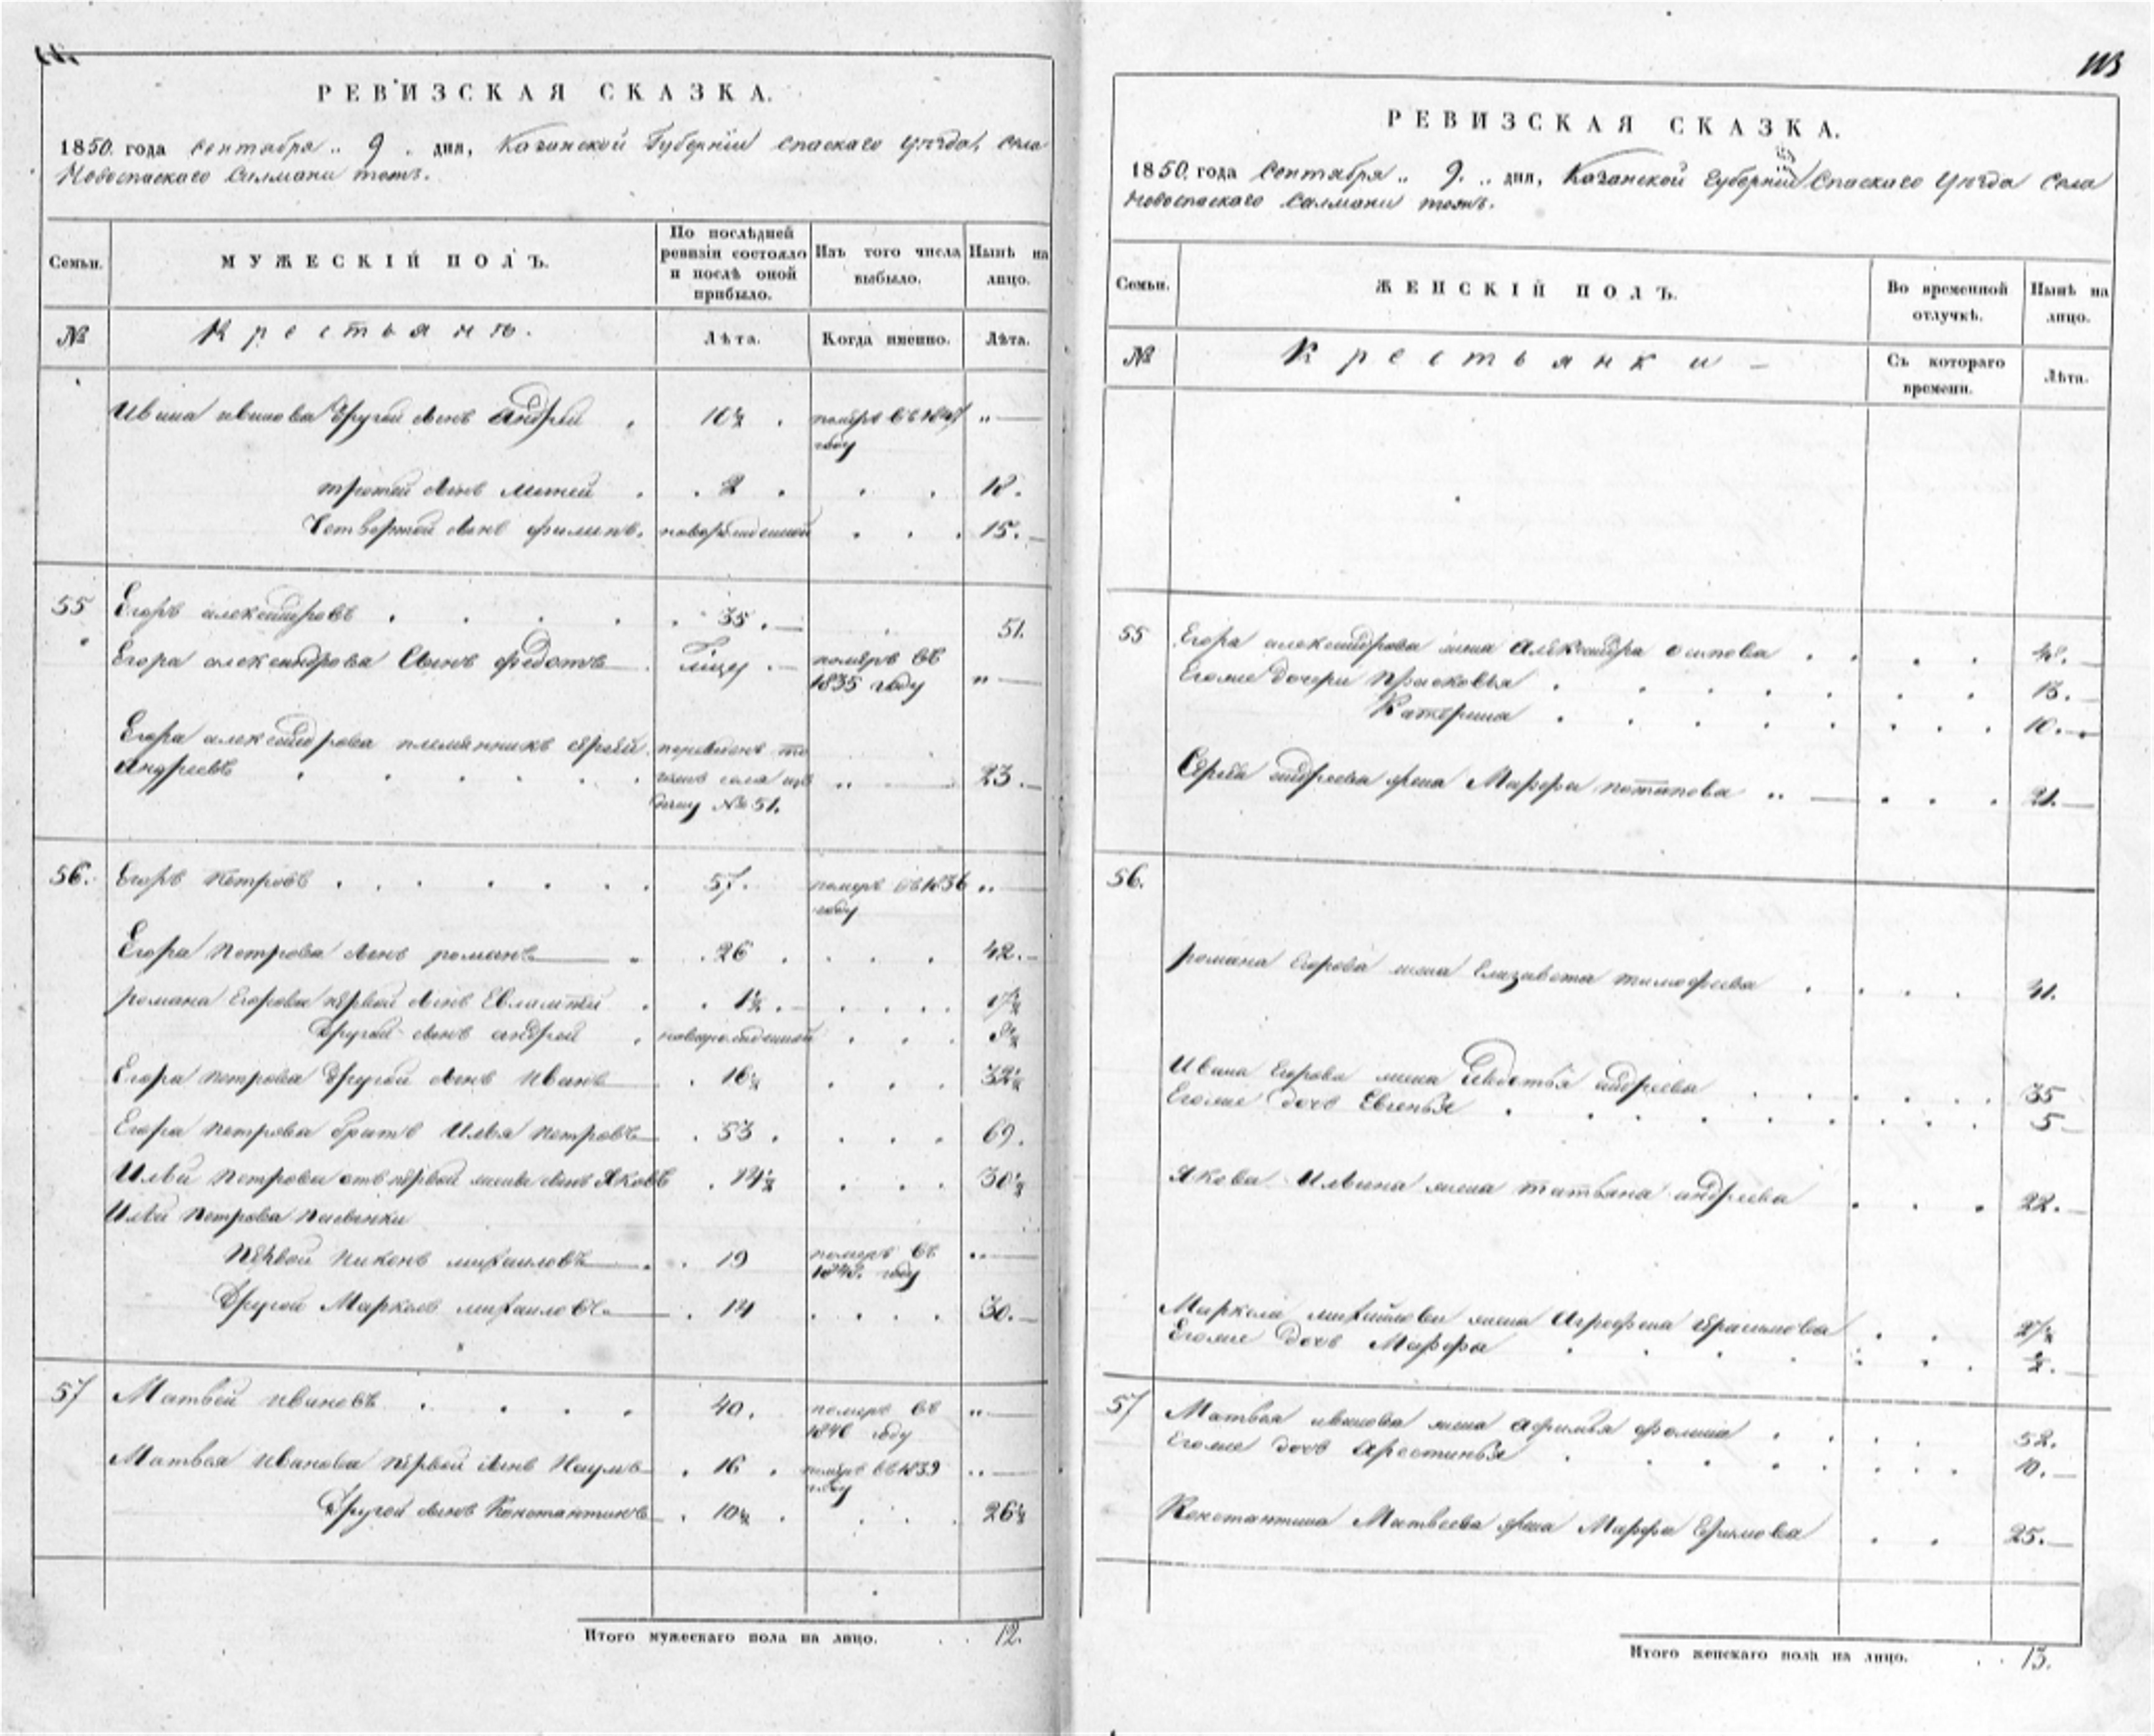 РЕВИЗСКАЯ СКАЗКА.
1850. года сентября „ 9 . дня, Казанской Губерніи спаскаго уѣзда, села
Новоспаскаго Салмани тожъ.
Семьи.
МУЖЕСКІЙ ПОЛЪ.
По послѣдней ревизіи состояло и послѣ оной прибыло.
Изъ того числа выбыло.
Нынѣ на лицо.
№
Крестьянъ.
Лѣта.
Когда именно.
Лѣта.
Ивана иванова другой сынъ Андрей 10½ померъ въ
году „
третей сынъ 2 18.
Четвертой сынъ филипъ. новорожденной 15.
55 Егоръ александровъ 35. 51.
Егора александрова Сынъ федотъ померъ въ
1835 году „
Егора александрова племянникъ сергѣй
Андреевъ „ 23.
№ 51.
56. Егоръ Петровъ 57. померъ въ 1836 „
году
Егора Петрова сынъ романъ 26 42.
романа Егорова первой сынъ Евлампей 1½ 17½
Другой сынъ андрей новорожденной 8½
Егора петрова другой сынъ Иванъ 16½ 32½
Егора петрова братъ Илья петровъ 53. 69.
Ильи Петрова отъ первой жены сынъ Яковъ 14½ 30½
Ильи Петрова
Первой Никонъ михаиловъ 19 померъ въ „
году
Другой Маркелъ михаиловъ 14 30.
57 Матвей ивановъ 40. померъ въ „
году
Матвея Иванова первой сынъ Наумъ 16 померъ въ 1839 „
году
Другой сынъ Константинъ 10½ 26½
Итого мужескаго пола на лицо. 12.
113
РЕВИЗСКАЯ СКАЗКА.
1850. года Сентября „ 9. „ дня, Казанской Губерніи Спаскаго Уѣзда Села
Новоспаскаго Салмани тожъ.
Семьи.
ЖЕНСКІЙ ПОЛЪ.
Во временной отлучкѣ.
Нынѣ на лицо.
№
Крестьянки
Съ котораго времени.
Лѣта.
55 Егора александрова жена Александра осипова
Егоже дочери Прасковья 13.
Катерина 10.
Сергѣя андреева жена Марфа потапова „ 21.
56.
романа Егорова жена Елизавета тимофеева 41.
Ивана Егорова жена Авдотья андреева 35
Егоже дочь Евгенья 5
Якова Ильина жена татьяна андреева 22.
Маркела михайлова жена Аграфена 27½
Егоже дочь Марфа ½.
57 Матвея иванова жена афимья фомина 52.
Егоже дочь 10.
Константина Матвеева жена Марфа Ефимова 25.
Итого женскаго пола на лицо. 13.